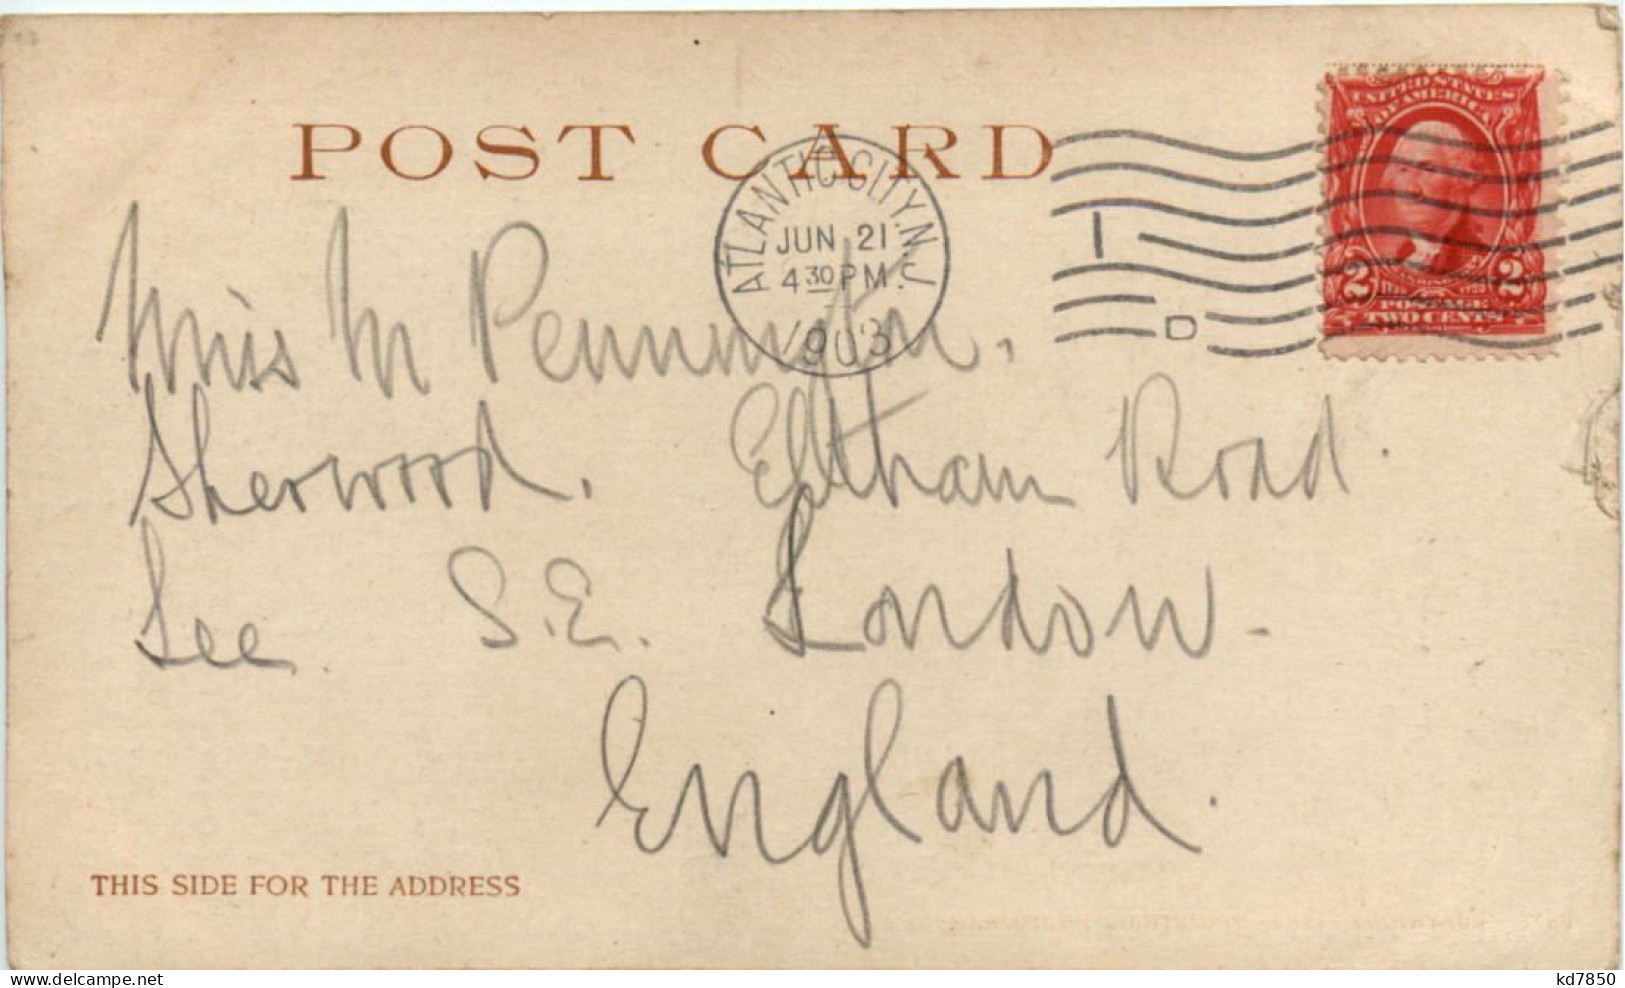 POST CARD
ATLANTIC CITY, N.J.
JUN 21
4 30 PM
1903
D
UNITED STATES
OF AMERICA
2 2
POSTAGE
TWO CENTS
Miss M Pennington.
Sherwood. Eltham Road.
Lee S.E. London-
England.
THIS SIDE FOR THE ADDRESS
www.delcampe.net
kd7850